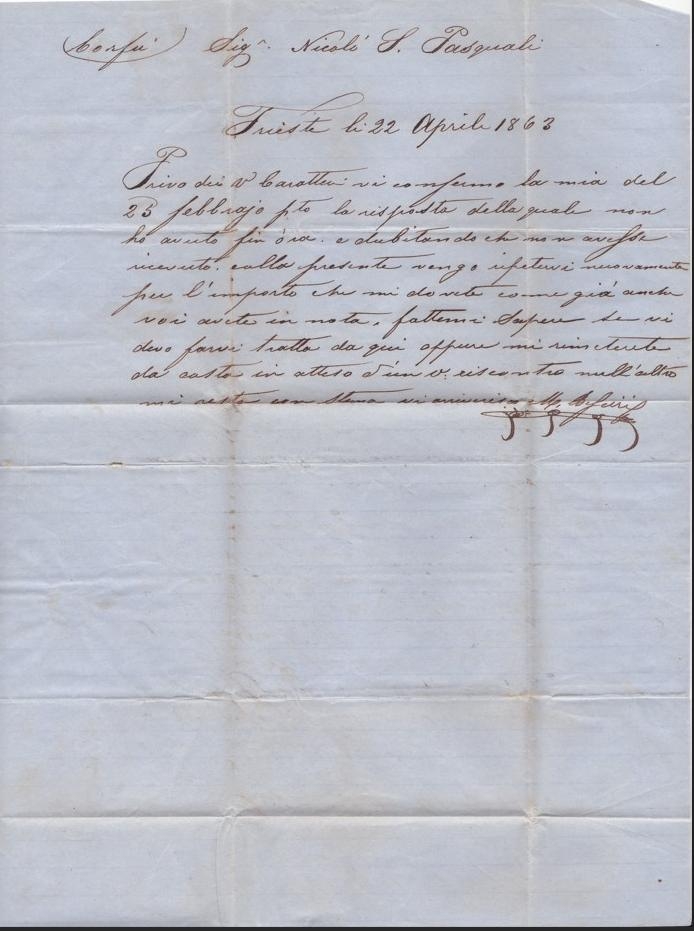 Corfù Sigr. Nicoló S. Pasquali
Trieste li 22 Aprile 1863
Privo dei vi Caratteri vi confermo la mia del
23 febbrajo pto la risposta della quale non
ho avuto fin'óra. e dubitando che non avesse
ricevuto. colla presente vengo ripetervi nuovamente
per l'importo che mi dovete come giá anche
voi avete in nota, fattemi Sapere se vi
devo farvi tratta da qui oppure mi rimeterete
da costa in atteso d'un vo. riscontro null'altro
mi resta con stima vi riverisco M.